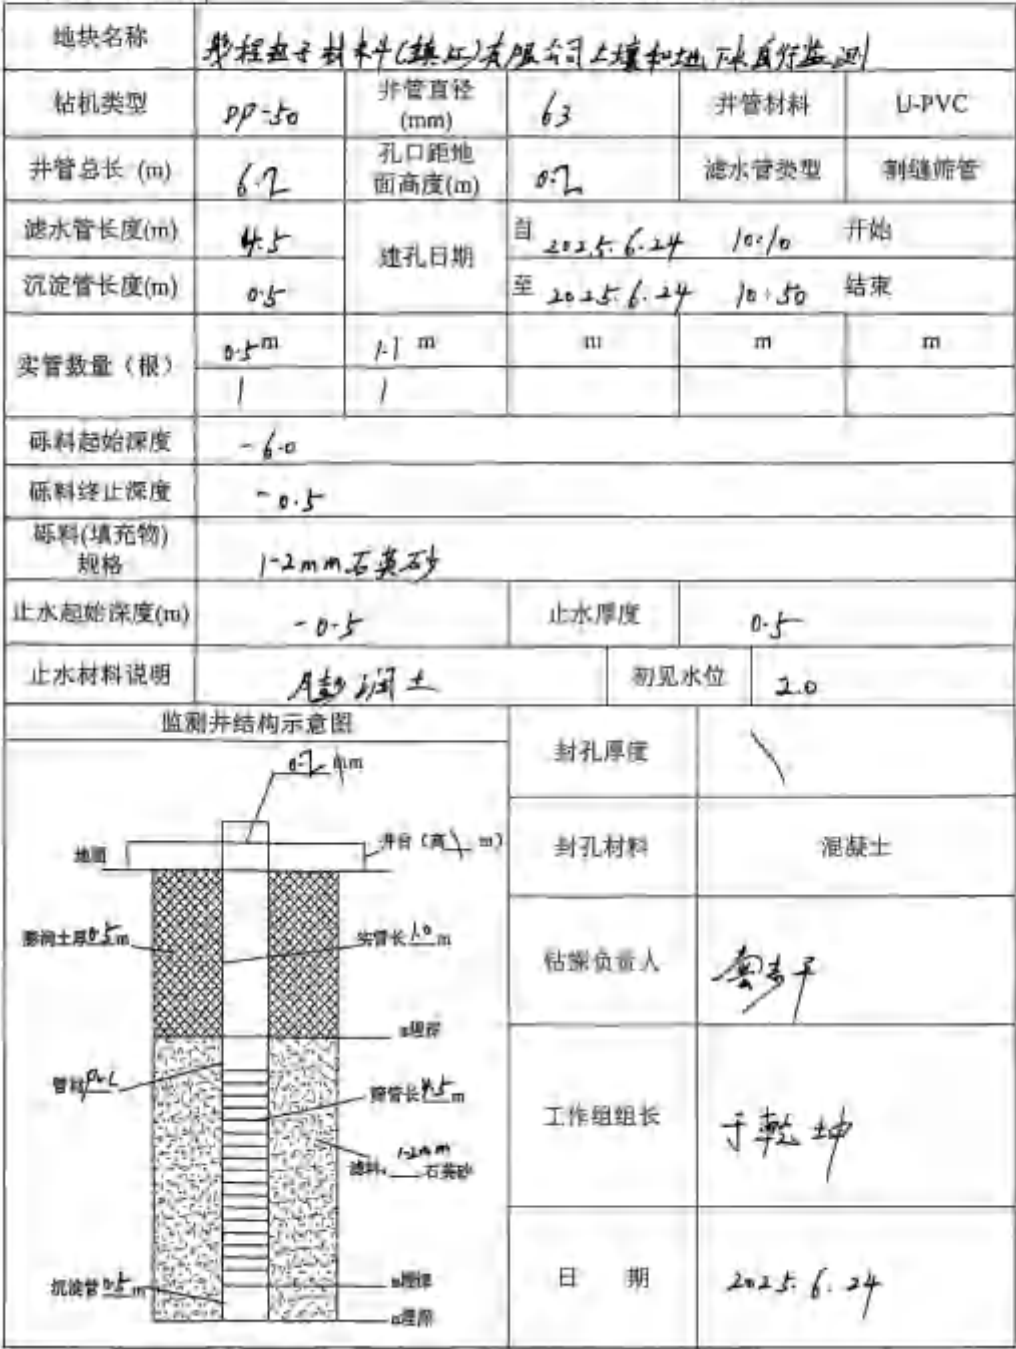 地块名称 彤程电子材料(镇江)有限公司土壤和地下水自行监测
钻机类型 PP-50 井管直径(mm) 63 井管材料 U-PVC
井管总长 (m) 6.2 孔口距地面高度(m) 0.2 滤水管类型 割缝筛管
滤水管长度(m) 4.5 建孔日期 自 2025.6.24 10:10 开始
沉淀管长度(m) 0.5 至 2025.6.24 10:50 结束
实管数量(根) 0.5 m 1.1 m m m m
1 1
砾料起始深度 -6.0
砾料终止深度 -0.5
砾料(填充物)规格 1-2mm石英砂
止水起始深度(m) -0.5 止水厚度 0.5
止水材料说明 膨润土 初见水位 2.0
监测井结构示意图
0.2 mm
地面
井台(高 \ m)
膨润土厚0.5m
实管长1.0m
m埋深
管材PVC
筛管长4.5m
滤料 1-2mm 石英砂
沉淀管0.5m
m埋深
m埋深
封孔厚度 \
封孔材料 混凝土
钻探负责人
工作组组长 于乾坤
日 期 2025.6.24